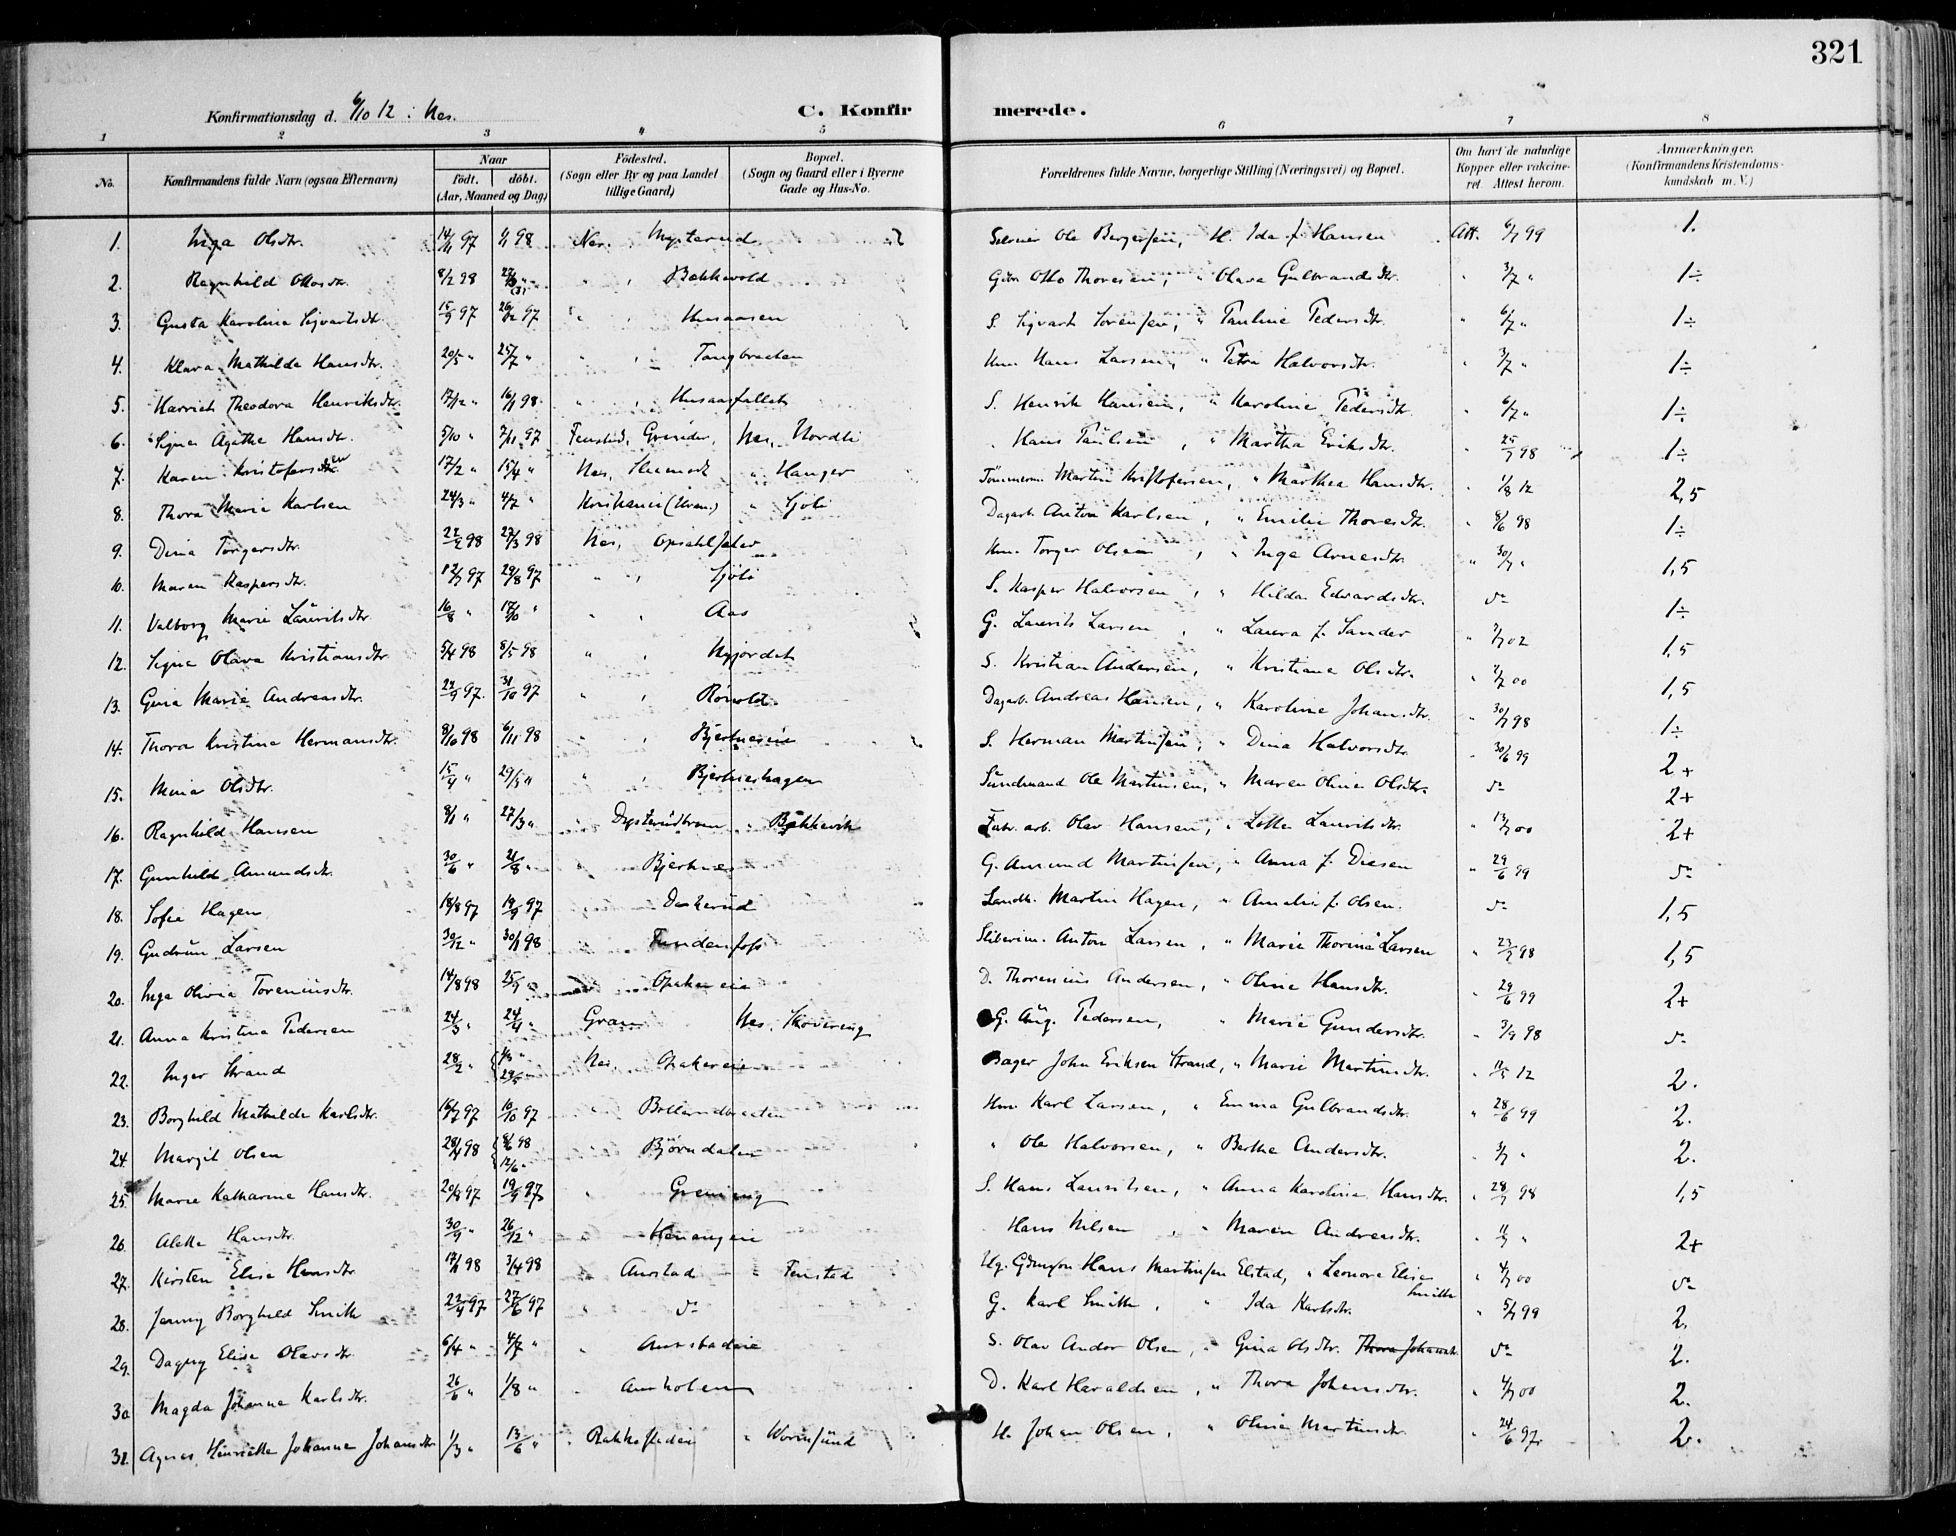 321
Konfirmationsdag d. 6/10 12 i Nes.
C. Konfirmerede.
1 2 3 4 5 6 7 8
No. Konfirmandens fulde Navn (ogsaa Efternavn) Naar født. døbt. (Aar, Maaned og Dag) Fødested. (Sogn eller By og paa Landet tillige Gaard) Bopæl. (Sogn og Gaard eller i Byerne Gade og Hus-No. Forældrenes fulde Navne, borgerlige Stilling (Næringsvei) og Bopæl. Om havt de naturlige Kopper eller vakcineret. Attest herom. Anmærkninger. (Konfirmandens Kristendomskundskab m. V.)
1. Inga Olsdtr. 14/11 97 1/1 98 Nes. Ole Bergersen, H. Ida f. Hansen Att. 6/7 99 1.
2. Ragnhild Ottosdtr. 8/2 98 Bakkevold Otto Thoresen, " Olava Gulbrandsdtr. " 3/7 " 1÷
3. Gusta Karoline Sigvartsdtr. 15/9 97 26/12 97 Husaasen S. Sigvart Sörensen, " Pauline Pedersdtr. " 6/7 " 1÷
4. Klara Mathilde Hansdtr. 20/5 " 25/7 " Tangbraaten Hm. Hans Larsen, " Petra Halvorsdtr. " 3/7 " 1÷
5. Harriet Theodora Henriksdtr. 17/12 " 16/1 98 Husaasfallet S. Henrik Hansen, " Karoline Pedersdtr. " 6/7 " 1÷
6. Signe Agathe Hansdtr. 5/10 " 7/11 97 Fenstad, Nes, Nordli Hans Paulsen, " Martha Eriksdtr. " 25/7 98 1÷
7. Karen Kristofersen 17/2 " 15/4 " Nes, " Hanger Tömmerm. Martin Kristofersen, " Marthea Hansdtr. " 1/8 12 2,5
8. Thora Marie Karlsen 24/3 " 4/7 " Kristiania " Sjöli Dagarb. Anton Karlsen, " Emilie Thoresdtr. " 8/6 98 1÷
9. Dina Torgersdtr. 22/2 98 27/3 98 Nes, Hm. Torger Olsen, " Inga Arnesdtr. " 30/7 " 1,5
10. Maren Kaspersdtr. 12/7 97 29/8 97 " , Sjöli S. Kasper Halvorsen, " Hilda Edvardsdtr. do 1÷
11. Valborg Marie Lauritsdtr. 16/8 " 17/10 " " , Aas G. Laurits Larsen, " Laura f. Sander 1,5
12. Signe Olava Kristiansdtr. 5/4 98 8/5 98 " , Nyjordet S. Kristian Andersen, " Kristiane Olsdtr. 1,5
13. Gina Marie Andreasdtr. 24/9 97 31/10 97 " , Dagarb. Andreas Hansen, " Karoline Johansdtr. " 30/7 98 1÷
14. Thora Kristine Hermansdtr. 8/10 98 6/11 98 " , S. Herman Martinsen, " Dina Halvorsdtr. " 30/6 99 2+
15. Mina Olsdtr. 15/4 " 29/5 " " , Bjerkneshagen Ole Martinsen, " Maren Oline Olsdtr. do 2+
16. Ragnhild Hansen 8/1 " 27/3 " " Bakkevik Fabr. arb. Olav Hansen, " Lotte Lauritsdtr. " 13/7 00 2+
17. Gunhild Amundsdtr. 30/6 " 21/8 " Bjerknes G. Amund Martinsen, " Anna f. Diesen " 29/6 99 do
18. Sofie Hagen 18/8 97 19/9 97 Daskerud Landh. Martin Hagen, " Amalie f. Olsen. do 1,5
19. Gudrun Larsen 30/12 " 30/1 98 Anton Larsen, " Marie Thorine Larsen " 23/7 98 1,5
20. Inga Olivia Toreniusdtr. 14/8 98 25/9 " D. Thorenius Andersen, " Oline Hansdtr. " 29/6 99 2+
21. Anna Kristine Pedersen 24/3 " 24/4 " Gran Nes, G. Aug. Pedersen, " Marie Gundersdtr. " 3/9 98 do
22. Inger Strand 28/2 " Nes, Bager John Eriksen Strand, " Marie Martinsdtr. 2.
23. Borghild Mathilde Karlsdtr. 16/7 97 10/10 97 Hm. Karl Larsen, " Emma Gulbrandsdtr. " 28/6 99 2.
24. Margit Olsen 28/4 98 8/6 98 12/6 " Björndalen " Ole Halvorsen, " Berthe Andersdtr. " 3/7 " 2.
25. Marie Katharine Hansdtr. 20/8 97 19/9 97 S. Hans Lauritsen, " Anna Karoline Hansdtr. " 28/7 98 1,5
26. Alette Hansdtr. 30/9 " 26/12 " Hans Nilsen, " Maren Andreasdtr. 2+
27. Kirsten Elise Hansdtr 3/4 98 Aurstad " Fenstad Hans Martinsen Elstad, " Leonora Elise Smith " 4/7 00 do
28. Jenny Borghild Smith 22/4 97 27/6 97 " do G. Karl Smith, " Ida Karlsdtr. " 5/7 99 2.
29. Dagny Elise Olavsdtr 6/4 " 4/7 " Aurstadeie S. Olav Andor Olsen, " Gina Olsdtr. Thora Johansdtr. do 2.
30 Magda Johanne Karlsdtr. 26/6 " 1/8 " Aurholen D. Karl Haraldsen, " Thora Johansdtr. " 4/7 00 2.
31. Agnes Henriette Johanne Johansdtr 1/3 " 13/6 " " Wormsund H. Johan Olsen, " Oline Martinsdtr. " 24/6 97. 2.